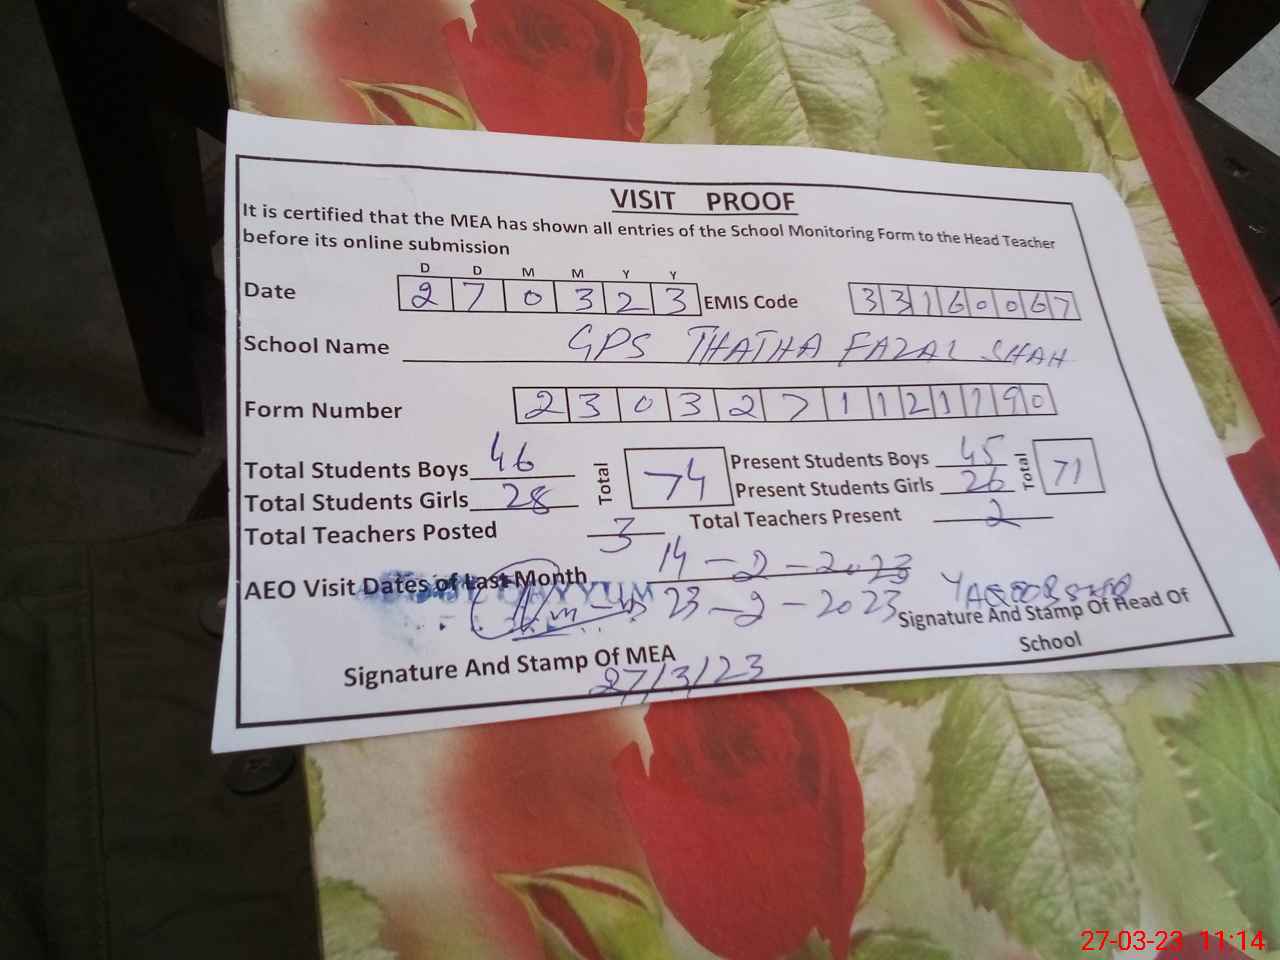 VISIT PROOF
It is certified that the MEA has shown all entries of the School Monitoring Form to the Head Teacher
before its online submission
D D M M Y Y
Date 2 7 0 3 2 3 EMIS Code 3 3 1 6 0 0 6 7
School Name GPS THATHA FAZAL SHAH
Form Number 2 3 0 3 2 7 1 1 2 1 1 9 0
Total Students Boys 46 Total 74 Present Students Boys 45 Total 71
Total Students Girls 28 Present Students Girls 26
Total Teachers Posted 3 Total Teachers Present 2
AEO Visit Dates of Last Month 14-2-2023
QAYYUM 23-2-2023
Signature And Stamp Of Head Of
School
Signature And Stamp Of MEA
27/3/23
27-03-23 11:14